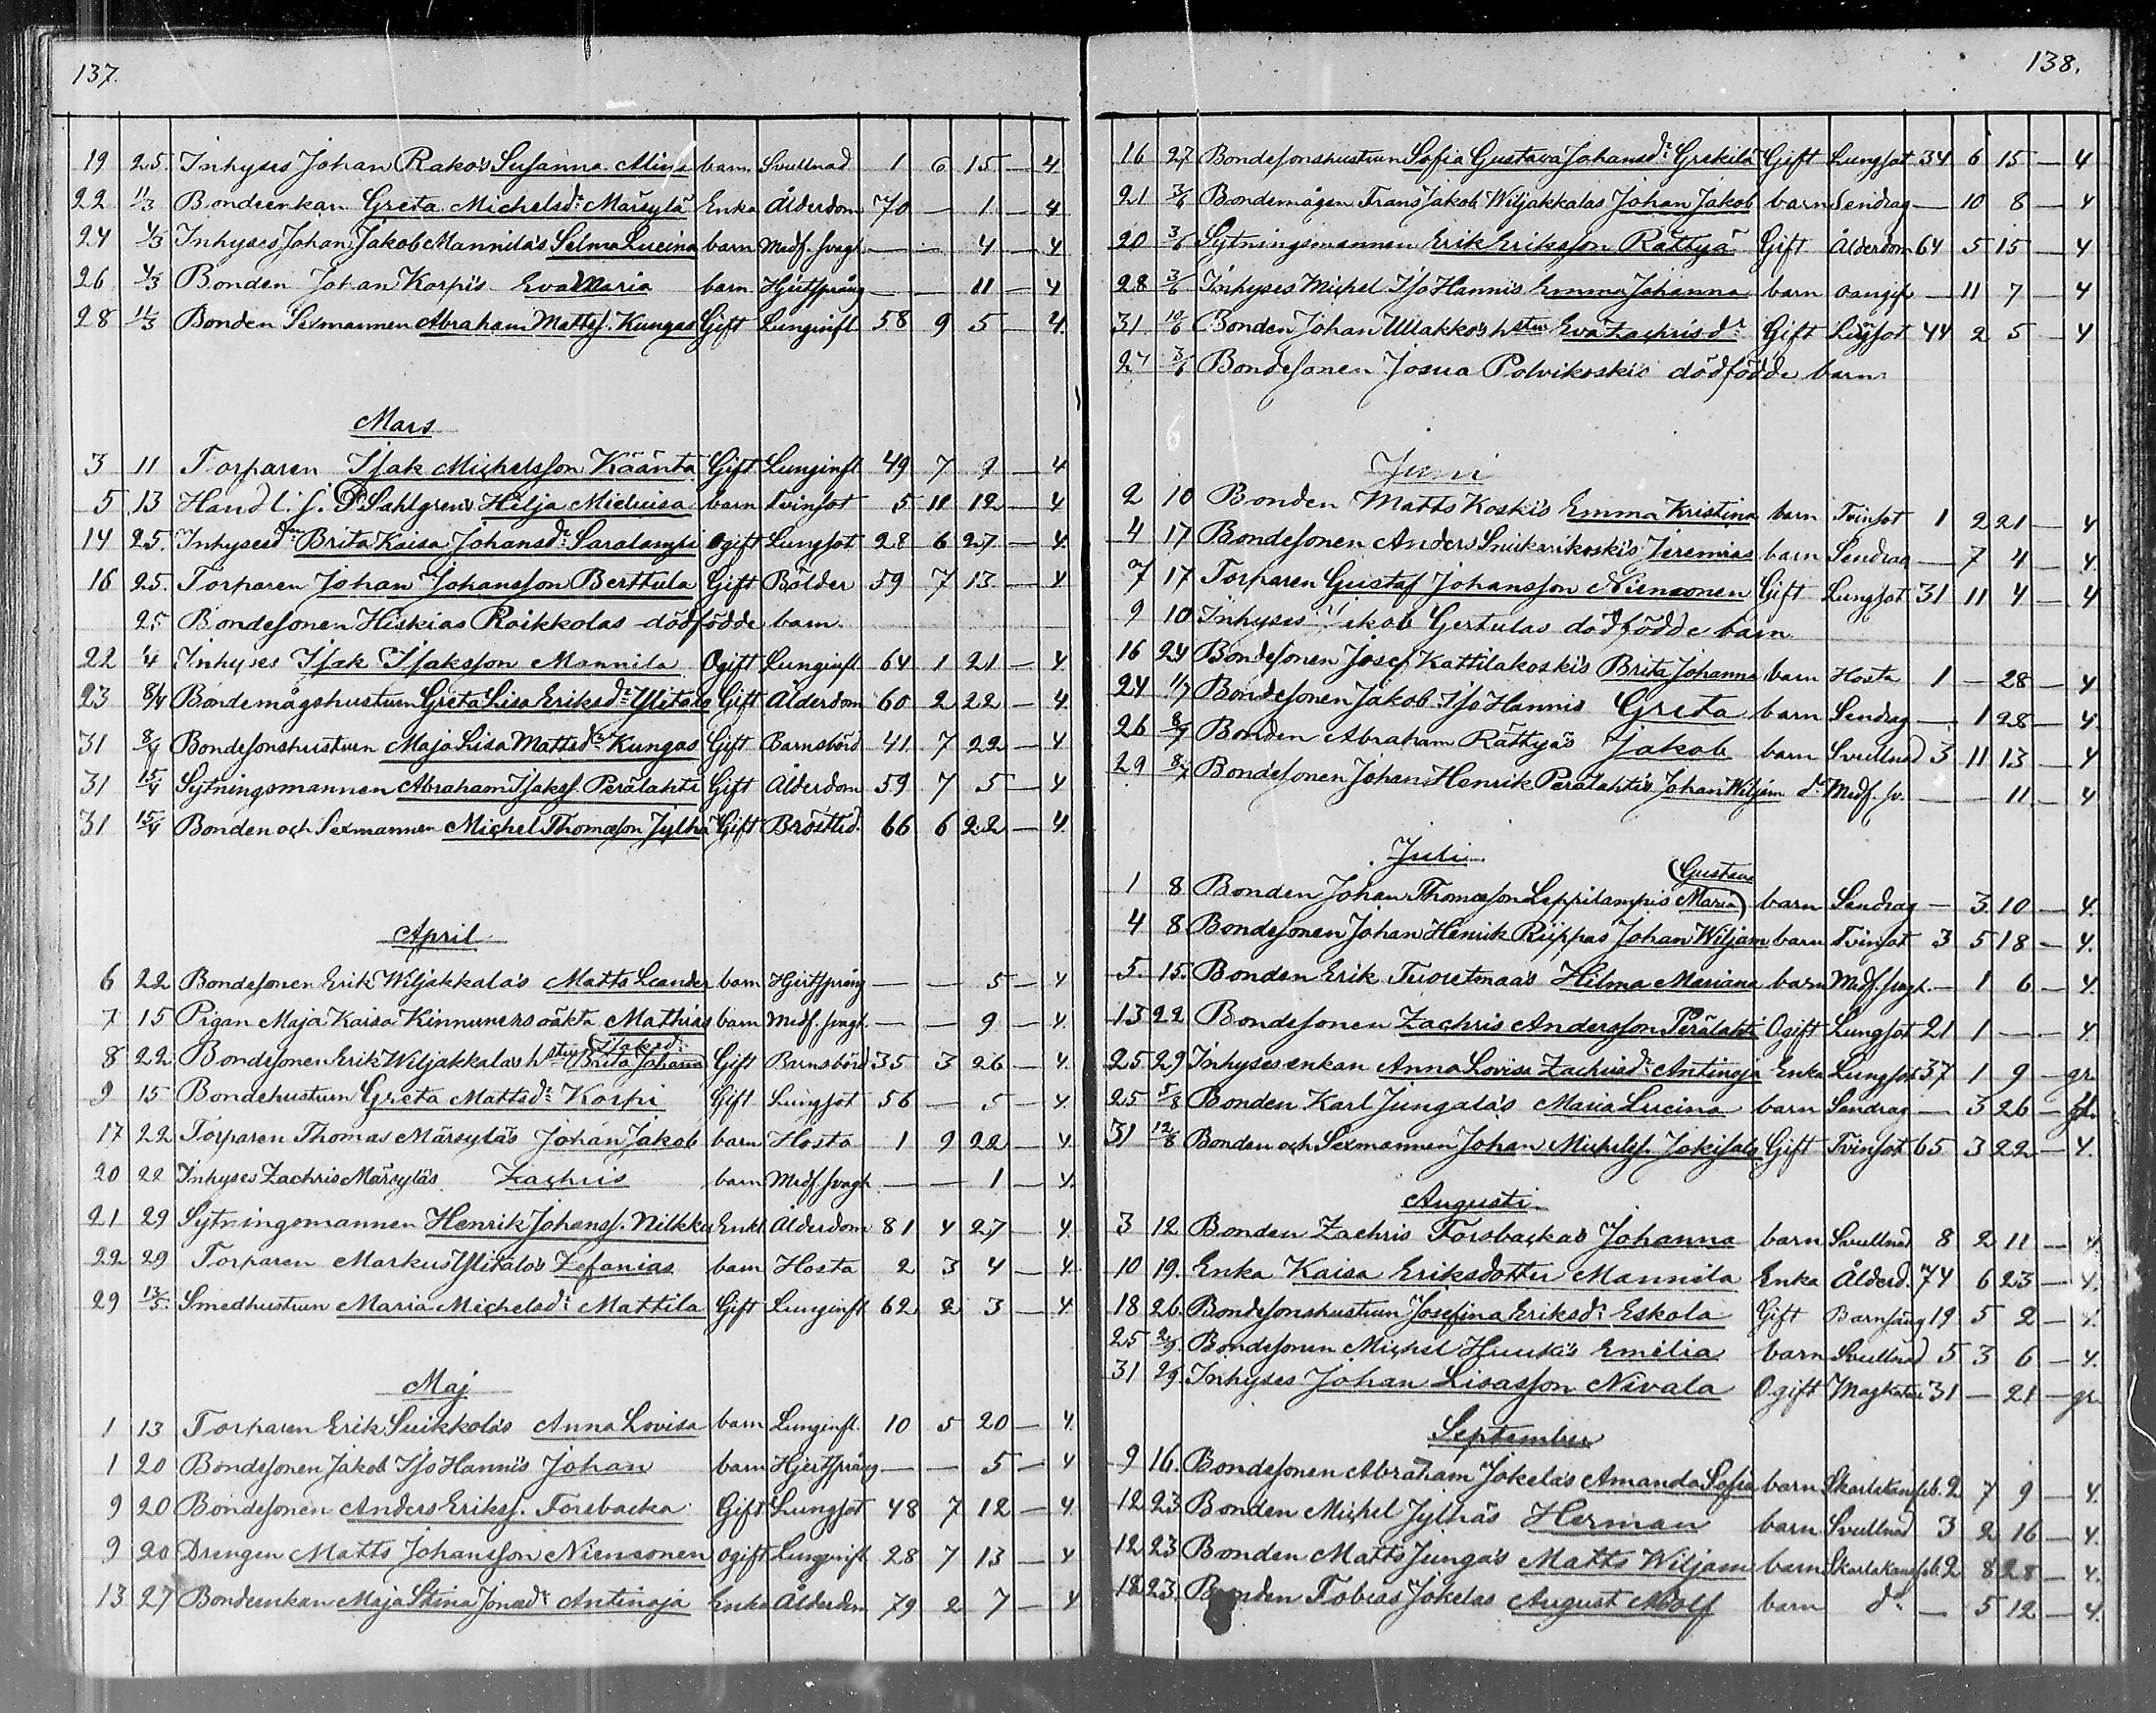 137.
19 25. Inhyses Johan Rako's Susanna Alina barn Svullnad 1 6 15 — 4
22 11/3 Bondeenkan Greta Michelsdr Märsylä Enka Ålderdom 70 — 1 — 4
24 4/3 Inhyses Johan Jakob Mannila's Selma Lucina barn Medf. svagh. — — 4 — 4
26 4/3 Bonden Johan Korpi's Eva Maria barn Hjertsprång — — 11 — 4
28 11/3 Bonden Sexmannen Abraham Mattss. Kungas Gift Lunginfl. 58 9 5 — 4.
Mars
3 11 Torparen Isak Michelsson Käänta Gift Lunginfl. 49 7 2 — 4
5 13 Handl. j. Sahlgrens Hilja barn Tvinsot 5 11 12 — 4
14 25. Inhysesd. Brita Kaisa Johansdr Saralampi Ogift Lungsot 28 6 27 — 4.
16 25. Torparen Johan Johansson Berttula Gift Bölder 59 7 13 — 4
25 Bondesonen Hiskias Raikkolas dödfödde barn.
22 1/4 Inhyses Isak Isaksson Mannila Ogift Lunginfl. 64 1 21 — 4.
23 8/4 Bondemågshustrun Greta Lisa Eriksdr Ylitalo Gift Ålderdom 60 2 22 — 4.
31 8/4 Bondesonshustrun Maja Lisa Mattsdr Kungas Gift Barnsbörd 41 7 22 — 4
31 15/4 Sytningsmannen Abraham Isakss. Perälahti Gift Ålderdom 59 7 5 — 4
31 15/4 Bonden och Sexmannen Michel Thomasson Jylhä Gift 66 6 22 — 4.
April
6 22 Bondesonen Erik Wiljakkala's Matts Leander barn Hjertsprång — — 5 — 4
7 15 Pigan Maja Kaisa Kinnunens oäkta Mathias barn Medf. svagh. — — 9 — 4.
8 22 Bondesonen Erik Wiljakkalas hstru Brita Johanna Isaksd. Gift Barnsbörd 35 3 26 — 4.
9 15 Bondehustrun Greta Mattsdr Korpi Gift Lungsot 56 — 5 — 4.
17 22 Torparen Thomas Märsyläs Johan Jakob barn Hosta 1 9 22 — 4.
20 22 Inhyses Zachris Märsylä's Zachris barn Medf. svagh. — — 1 — 4.
21 29 Sytningsmannen Henrik Johanss. Nilkku Enkl. Ålderdom 81 4 27 — 4.
22 29 Torparen Markus Ylitalo's Zefanias barn Hosta 2 3 4 — 4
29 13/5. Smedhustrun Maria Michelsdr Mattila Gift Lunginfl. 62 2 3 — 4.
Maj
1 13 Torparen Erik Suikkola's Anna Lovisa barn Lunginfl. 10 5 20 — 4.
1 20 Bondesonen Jakob Iso Hanni's Johan barn Hjertsprång — — 5 — 4
9 20 Bondesonen Anders Erikss. Forsbacka Gift Lungsot 48 7 12 — 4
9 20 Drengen Matts Johansson Niensonen ogift Lunginfl. 28 7 13 — 4
13 27 Bondeenkan Maja Stina Jonasdr Antinoja Enka Ålderdom 79 2 7 — 4
138.
16 27 Bondesonshustrun Sofia Gustava Johansdr Grekilä Gift Lungsot 34 6 15 — 4
21 3/6 Bondemågen Frans Jakob Wiljakkalas Johan Jakob barn Sendrag — 10 8 — 4
20 3/6 Sytningsmannen Erik Eriksson Rättyä Gift Ålderdom 64 5 15 — 4
28 3/6 Inhyses Michel Iso Hannis Emma Johanna barn oangif. — 11 7 — 4
31 10/6 Bonden Johan Ullakko's hstru Eva Zachrisdr Gift Lungsot 44 2 5 — 4
27 3/6 Bondesonen Josua Polvikoski's dödfödde barn
Juni
2 10 Bonden Matts Koski's Emma Kristina barn Tvinsot 1 2 21 — 4
4 17 Bondesonen Anders Jeremias barn Sendrag — 7 4 — 4.
7 17 Torparen Gustaf Johansson Niensonen Gift Lungsot 31 11 4 — 4
9 10 Inhyses Jakob Gertulas dödfödde barn
16 24 Bondesonen Josef Kattilakoski's Brita Johanna barn Hosta 1 — 28 — 4
24 1/7 Bondesonen Jakob Iso Hannis Greta barn Sendrag — 1 28 — 4.
26 8/7 Bonden Abraham Rättyä's Jakob barn Svullnad 3 11 13 — 4
29 8/7 Bondesonen Johan Henrik Perälahti's Johan Wiljam do Medf. sv. — — 11 — 4
Juli
1 8 Bonden Johan Thomasson Leppilampis Maria Gustava barn Sendrag — 3 10 — 4.
4 8 Bondesonen Johan Henrik Riippas Johan Wiljam barn Tvinsot 3 5 18 — 4.
5 15. Bonden Erik Tuoretmaa's Hilma Mariana barn Medf. svagh. — 1 6 — 4.
13 22 Bondesonen Zachris Andersson Perälahti Ogift Lungsot 21 1 — — 4.
25 29 Inhysesenkan Anna Lovisa Zachrisdr Antinoja Enka Lungsot 37 1 9 — gr.
25 5/8 Bonden Karl Jungala's Maria Lucina barn Sendrag — 3 26 —
31 12/8 Bonden och Sexmannen Johan Michelss. Jokisalo Gift Tvinsot 65 3 22 — 4.
Augusti
3 12. Bonden Zachris Forsbackas Johanna barn Svullnad 8 2 11 — 4
10 19. Enka Kaisa Eriksdotter Mannila Enka Ålderd. 74 6 23 — 4.
18 26. Bondesonshustrun Josefina Eriksdr Eskola Gift Barnsäng 19 5 2 — 4.
25 2/9. Bondesonen Michel Huuki's Emilia barn Svullnad 5 3 6 — 4.
31 2/9. Inhyses Johan Lisasson Nivala Ogift Magkatar 31 — 21 — gr.
September
9 16. Bondesonen Abraham Jokela's Amanda Sofia barn Skarlakansfeb. 2 7 9 — 4.
12 23 Bonden Michel Jylhäs Herman barn Svullnad 3 2 16 — 4.
12 23 Bonden Matts Junga's Matts Wiljam barn Skarlakansfeb. 2 8 28 — 4.
18 23. Bonden Tobias Jokelas August Adolf barn do — 5 12 — 4.